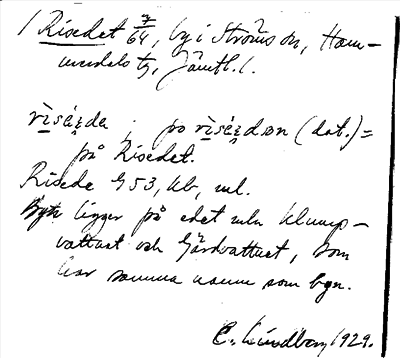 / Risedet 7/64, by i Ströms sn, Ham-
merdals tg, Jämtl. l.
rìséda ; po rìsédən (dat.) =
på Risedet.
Risede 953, kb, ml.
Byn ligger på edet mln Klump-
vattnet och Gärdvattnet, som
har samma namn som byn.
C. Lindberg 1929.